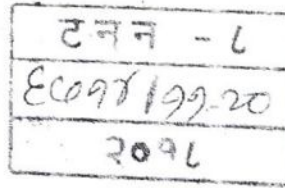 टनन - ८
६७१४/११-२०
२०१८